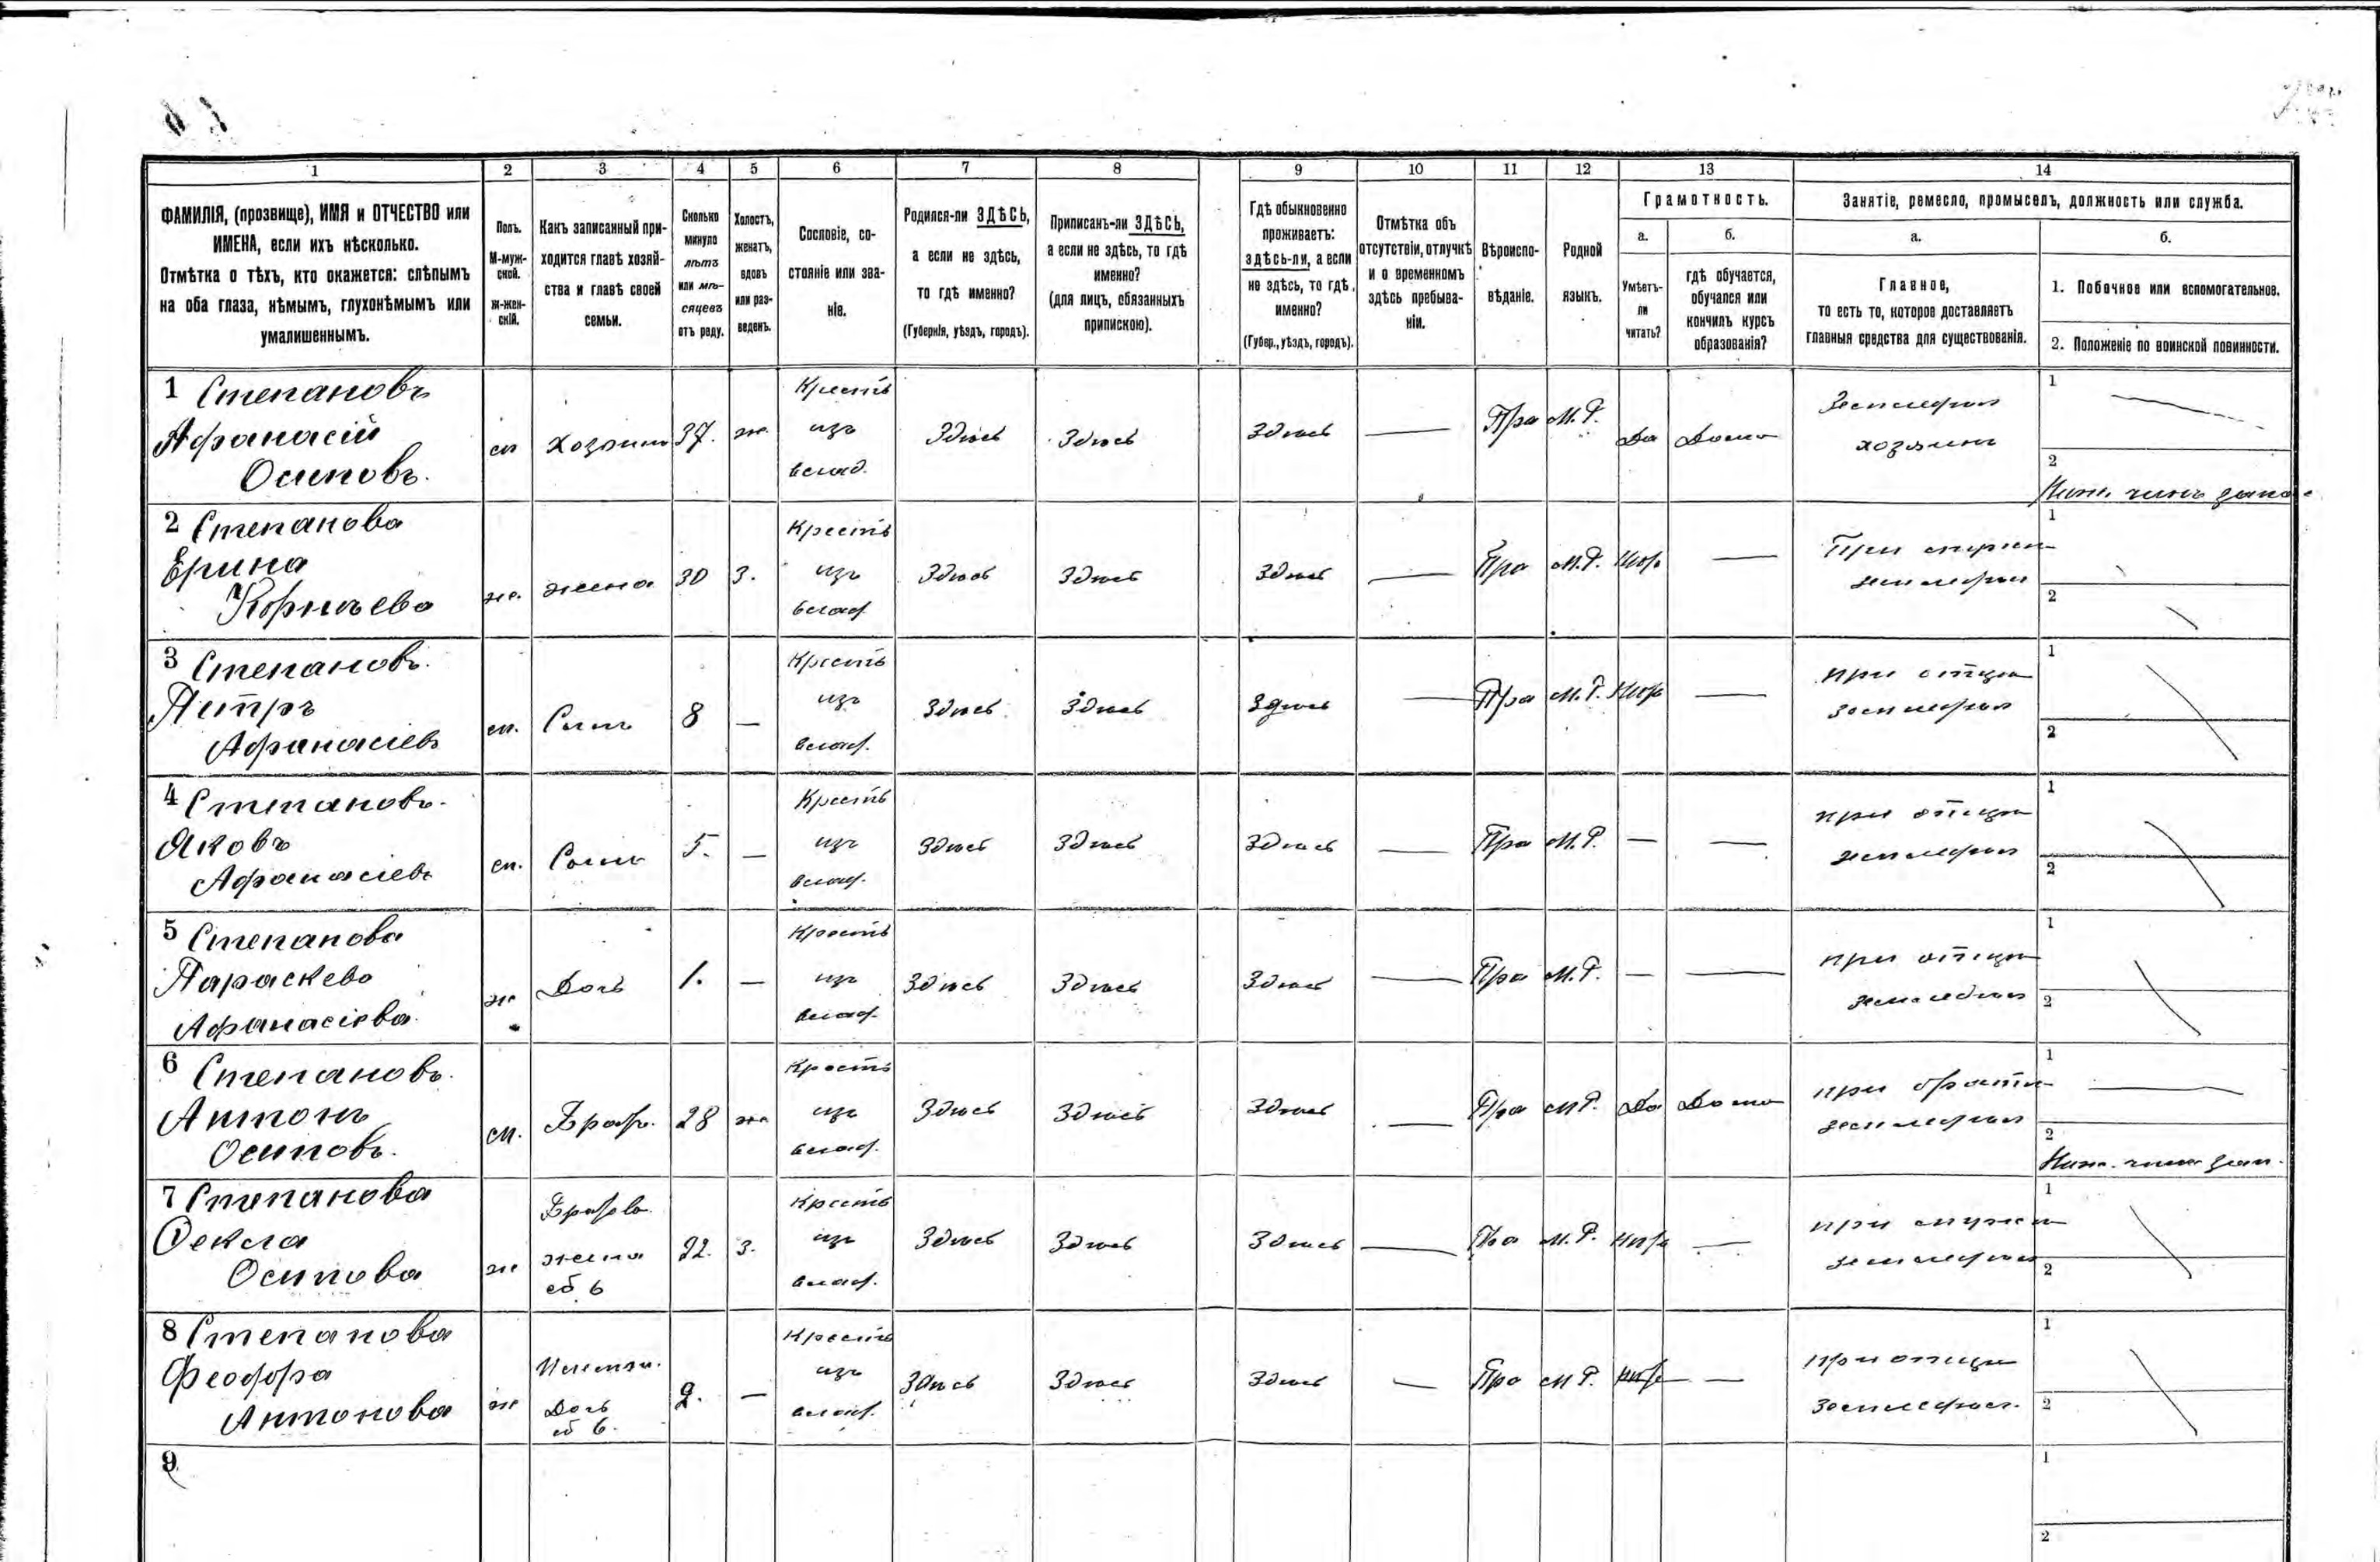 1 2 3 4 5 6 7 8 9 10 11 12 13 14
ФАМИЛІЯ, (прозвище), ИМЯ и ОТЧЕСТВО или
ИМЕНА, если ихъ нѣсколько.
Отмѣтка о тѣхъ, кто окажется: слѣпымъ
на оба глаза, нѣмымъ, глухонѣмымъ или
умалишеннымъ.
Полъ.
М-муж-
ской.
ж-жен-
скій.
Какъ записанный при-
ходится главѣ хозяй-
ства и главѣ своей
семьи.
Сколько
минуло
лѣтъ
или мѣ-
сяцевъ
отъ роду.
Холостъ,
женатъ,
вдовъ
или раз-
веденъ.
Сословіе, со-
стояніе или зва-
ніе.
Родился-ли ЗДѢСЬ,
а если не здѣсь,
то гдѣ именно?
(Губернія, уѣздъ, городъ).
Приписанъ-ли ЗДѢСЬ,
а если не здѣсь, то гдѣ
именно?
(для лицъ, обязанныхъ
припискою).
Гдѣ обыкновенно
проживаетъ:
здѣсь-ли, а если
не здѣсь, то гдѣ
именно?
(Губер., уѣздъ, городъ).
Отмѣтка объ
отсутствіи, отлучкѣ
и о временномъ
здѣсь пребыва-
ніи.
Вѣроиспо-
вѣданіе.
Родной
языкъ.
Грамотность.
а.
Умѣетъ-
ли
читать?
б.
гдѣ обучается,
обучался или
кончилъ курсъ
образованія?
Занятіе, ремесло, промыселъ, должность или служба.
а.
Главное,
то есть то, которое доставляетъ
главныя средства для существованія.
б.
1. Побочное или вспомогательное.
2. Положеніе по воинской повинности.
1 Степановъ
Афанасій
Осиповъ.
м
Хозяинъ
37.
ж.
Крестъ
изъ
влад.
Здѣсь
Здѣсь
Здѣсь
—
Пра
М.Р.
Да
Дома
Земледѣл
хозяинъ
1 —
2
Ниж. чинъ запа
2 Степанова
Ерина
Корнѣева
ж.
жена
30
З.
Крестъ
изъ
влад.
Здѣсь
Здѣсь
Здѣсь
—
Пра
М.Р.
Нѣт
—
При мужѣ
земледѣл
1
2
3 Степановъ.
Петръ
Афанасіевъ
м.
Сынъ
8
—
Крестъ
изъ
влад.
Здѣсь
Здѣсь
Здѣсь
—
Пра
М.Р.
Нѣт
—
при отцѣ
земледѣл
1
2
4 Степановъ.
Яковъ
Афанасіевъ
м.
Сынъ
5.
—
Крестъ
изъ
влад.
Здѣсь
Здѣсь
Здѣсь
—
Пра
М.Р.
—
—
при отцѣ
земледѣл
1
2
5 Степанова
Параскева
Афанасіева
ж
Дочь
1.
—
Крестъ
изъ
влад.
Здѣсь
Здѣсь
Здѣсь
—
Пра
М.Р.
—
—
при отцѣ
земледѣл
1
2
6 Степановъ.
Антонъ
Осиповъ.
м.
Брат.
28
ж
Крестъ
изъ
влад.
Здѣсь
Здѣсь
Здѣсь
—
Пра
М.Р.
Да
Дома
при братѣ
земледѣл
1 —
2
Ниж. чинъ зап.
7 Степанова
Ѳекла
Осипова
ж
жена
об 6
22.
З.
Крестъ
изъ
влад.
Здѣсь
Здѣсь
Здѣсь
—
Пра
М.Р.
Нѣт
—
при мужѣ
земледѣл
1
2
8 Степанова
Феодора
Антонова
ж
Дочь
об 6.
2.
—
Крестъ
изъ
влад.
Здѣсь
Здѣсь
Здѣсь
—
Пра
М.Р.
—
при отцѣ
земледѣл.
1
2
9
1
2